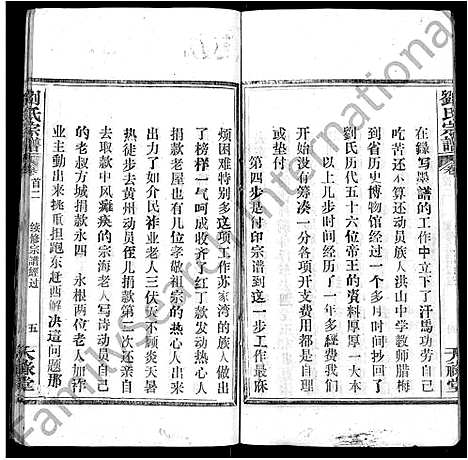 劉氏宗譜 卷
在錄写墨譜的工作中立下了汗馬功劳自己
吃苦还不算还动員族人洪山中学教師腊梅
到省历史博物馆经过一个多月时间抄回了
劉氏历代五十六位帝王的資料厚厚一大本
以上几步时间经历了一年多經費我们
开始没有筹凑一分各項开支費用都是自我
或垫付
第四步是付印宗譜到这一步工作最麻
天祿堂
烦困难特别多这項工作苏家湾的族人做出
了榜样一气呵成收齐了红丁款发动热心人
捐款老屋也有几位孝敬祖宗的热心人出
出力出了如介民祚业老人三伏天不顾炎天暑
热徒步去黄州动員侄儿捐款第一次还亲自
去取款中风癱痪的宗海老人写诗动員自己
的老叔方城捐款永四 永根两位老人加祚
业主動出来挑重担跑东赶西解决這问題那
劉氏宗譜 卷首二
续修宗譜經过
五
天祿堂
FamilySearch International